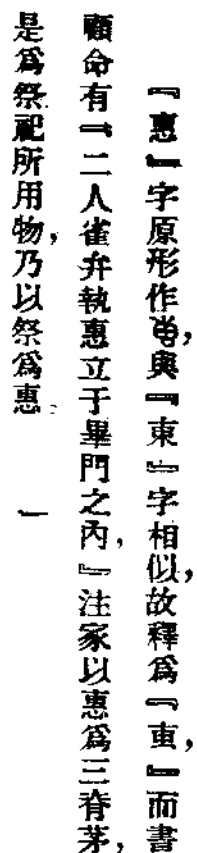 『惠』字原形作叀,與『東』字相似,故釋爲『叀,』而書
顧命有『二人雀弁執惠立于畢門之內,』注家以惠爲三脊茅,
是爲祭祀所用物,乃以祭爲惠。」